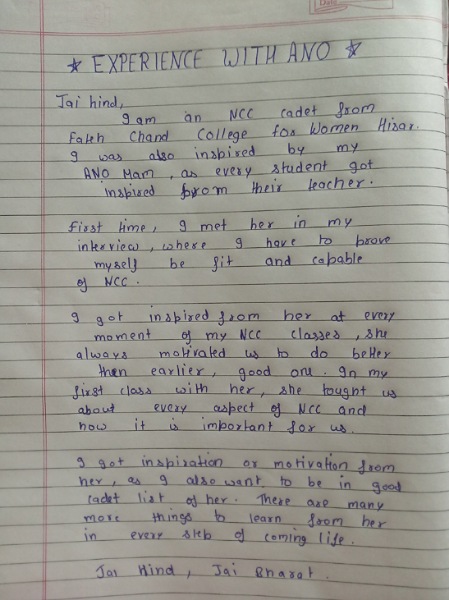 ★ EXPERIENCE WITH ANO ★
Jai hind,
I am an NCC cadet from
Fateh Chand College for Women Hisar.
I was also inspired by my
ANO Mam, as every student got
inspired from their teacher.
First time, I met her in my
interview, where I have to prove
myself be fit and capable
of NCC.
I got inspired from her at every
moment of my NCC classes, she
always motivated us to do better
then earlier, good one. In my
first class with her, she tought us
about every aspect of NCC and
how it is important for us.
I got inspiration or motivation from
her, as I also want to be in good
cadet list of her. There are many
more things to learn from her
in every step of coming life.
Jai Hind, Jai Bharat.